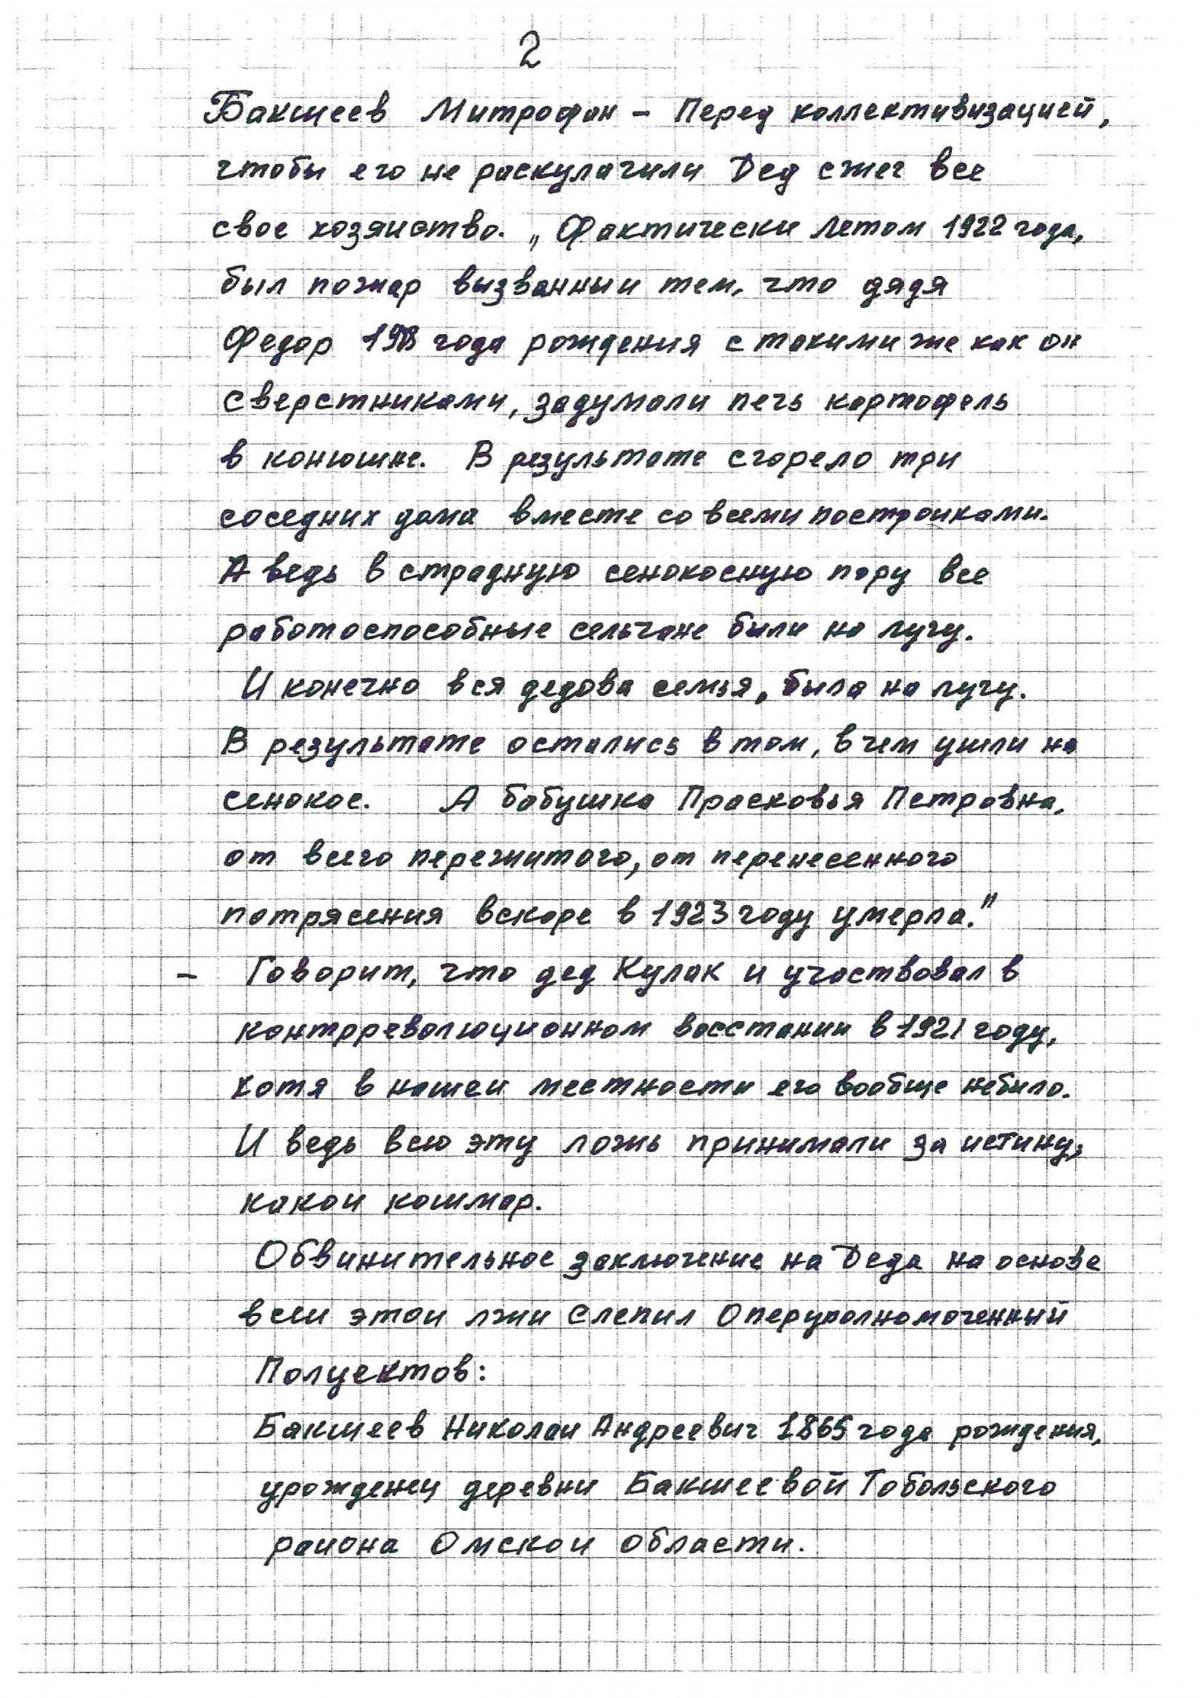 2
Бакшеев Митрофан – Перед коллективизацией,
чтобы его не раскулачили Дед сжег все
свое хозяиство. „ Фактически летом 1922 года,
был пожар вызванныи тем, что дядя
Федор года рождения с такими же как он
сверстниками, задумали печь картофель
в конюшне. В результате сгорело три
соседних дома вместе со всеми постройками.
А ведь в страдную сенокосную пору все
работоспособные сельчане были на лугу.
И конечно вся дедова семья, была на лугу.
В результате остались в том, в чем ушли на
сенокос. А бабушка Прасковья Петровна,
от всего пережитого, от перенесенного
потрясения вскоре в 1923 году умерла."
– Говорит, что дед Кулак и участвовал в
контрреволюционном восстании в 1921 году,
хотя в нашеи местности его вообще небыло.
И ведь всю эту ложь принимали за истину,
какои кошмар.
Обвинительное заключение на Деда на основе
всеи этои лжи Слепил Оперуполномоченный
Полуектов:
Бакшеев Николаи Андреевич 1865 года рождения,
урожденец деревни Бакшеевой Тобольского
раиона Омскои области.